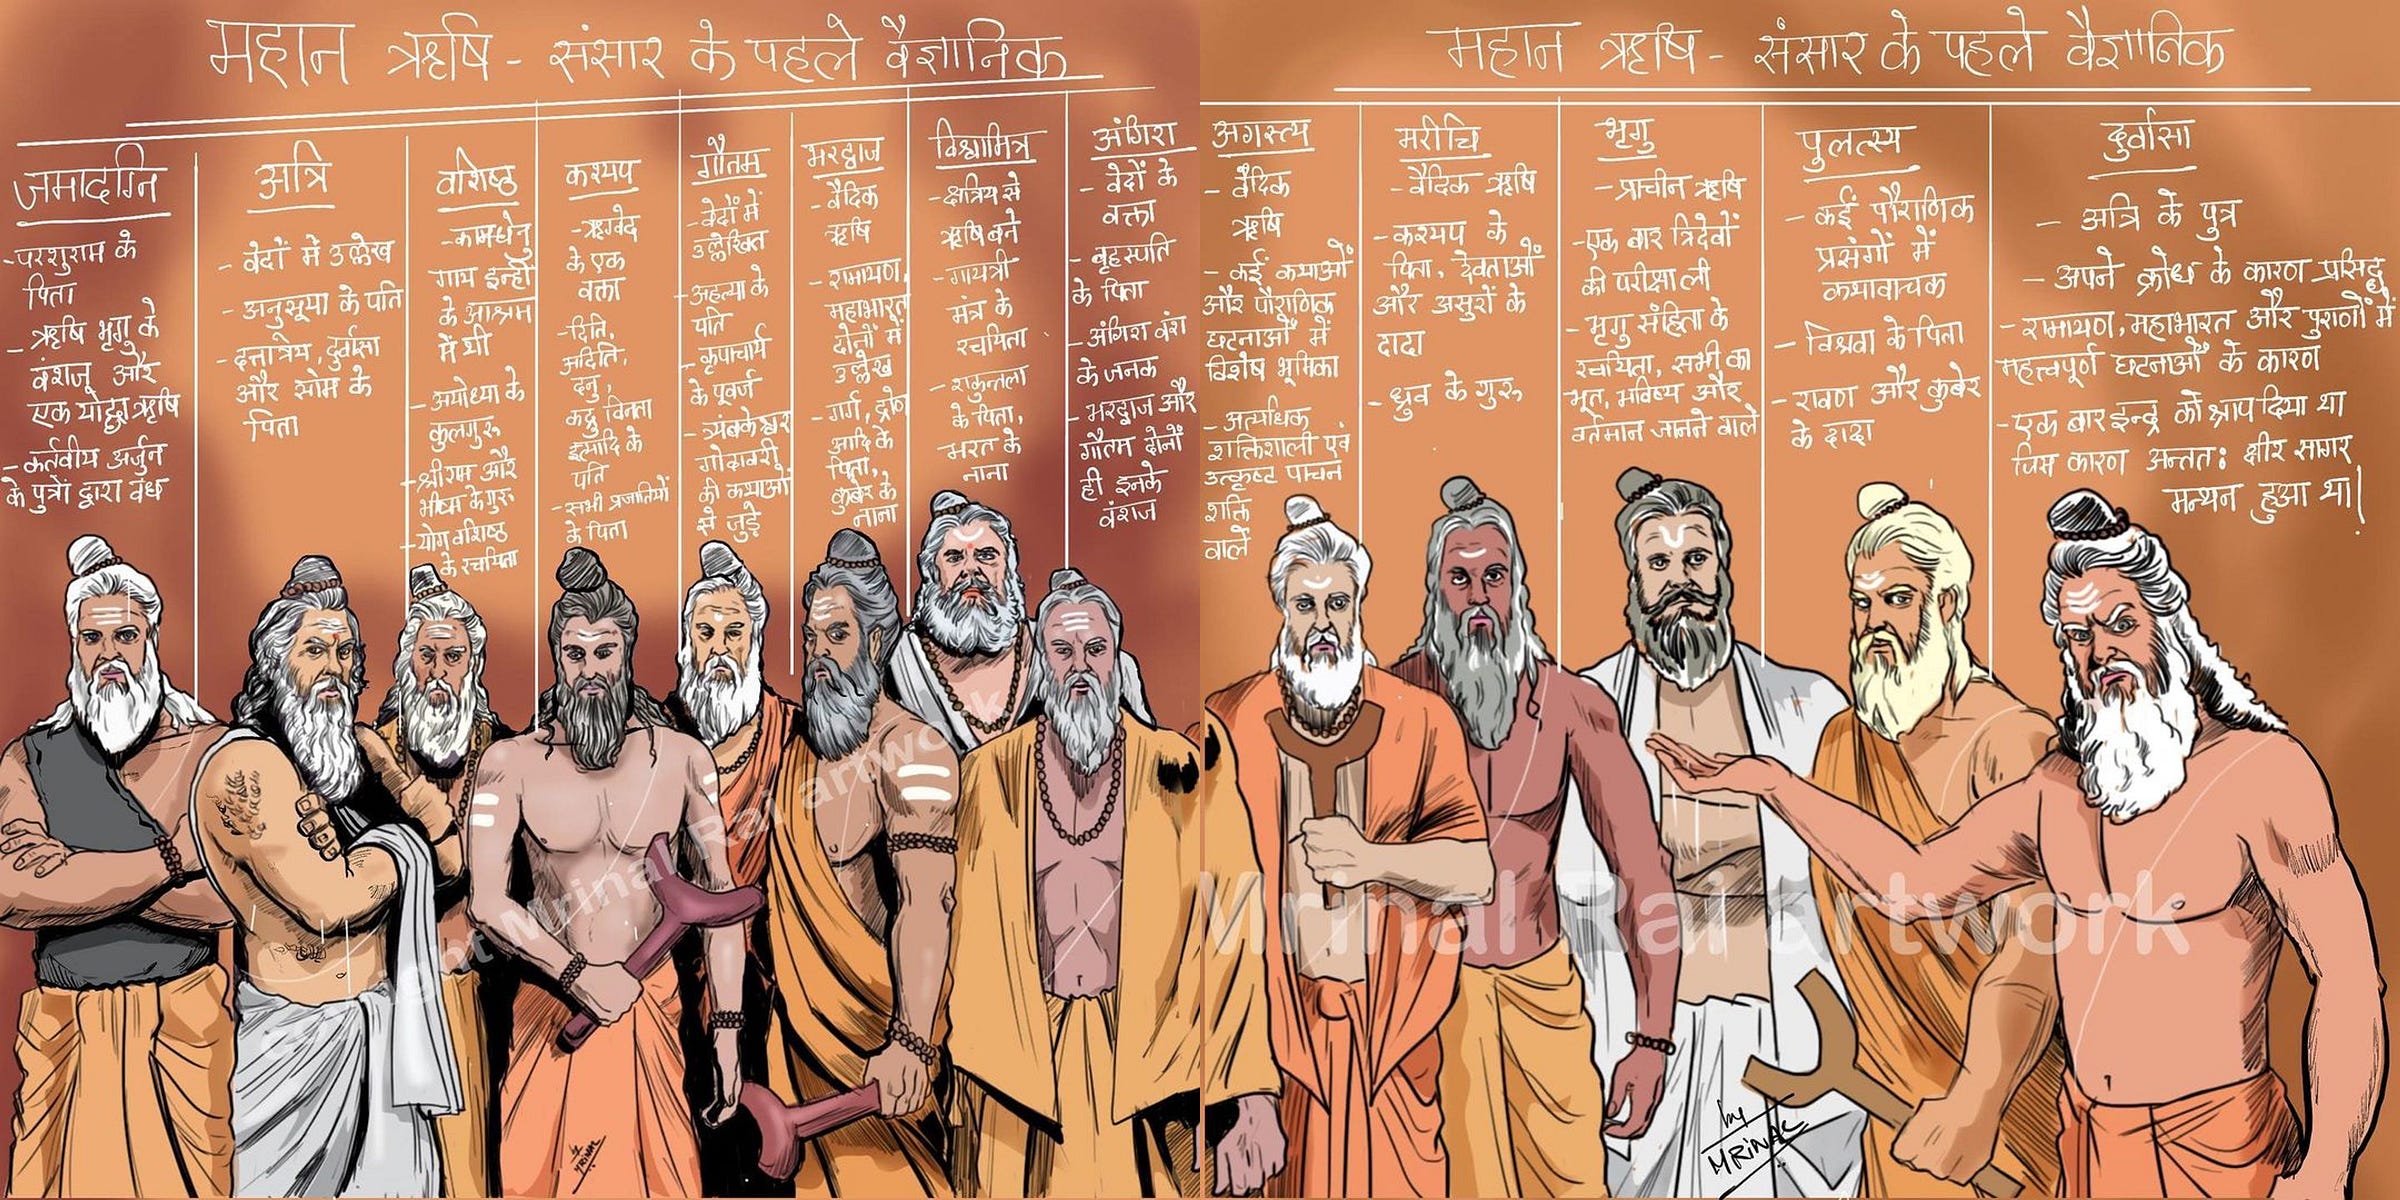 महान ऋषि - संसार के पहले वैज्ञानिक
जमादग्नि
- परशुराम के
पिता
- ऋषि भृगु के
वंशज और
एक योद्धा ऋषि
- कर्तवीय अर्जुन
के पुत्रों द्वारा वध
अत्रि
- वेदों में उल्लेख
- अनुसूया के पति
- दत्तात्रेय, दुर्वासा
और सोम के
पिता
वशिष्ठ
- कामधेनु
गाय इन्ही
के आश्रम
में थी
- अयोध्या के
कुलगुरु
- श्रीराम और
भीष्म के गुरु
- योग वशिष्ठ
के रचयिता
कश्यप
- ऋग्वेद
के एक
वक्ता
- दिति,
अदिति,
दनु,
कद्रु विनता
इत्यादि के
पति
- सभी प्रजातियों
के पिता
गौतम
- वेदों में
उल्लेखित
- अहत्या के
पति
- कृपाचार्य
के पूवर्ज
- त्र्यंबकेश्वर
गोदावरी
की कथाओं
से जुड़े
भरद्वाज
- वैदिक
ऋषि
- रामायण,
महाभारत
दोनों में
उल्लेख
- गर्ग, द्रोण
आदि के
पिता,
कुबेर के
नाना
विश्वामित्र
- क्षत्रिय से
ऋषि बने
- गायत्री
मंत्र के
रचयिता
- शकुन्तला
के पिता,
भरत के
नाना
अंगिरा
- वेदों के
वक्ता
- बृहस्पति
के पिता
- अंगिरा वंश
के जनक
- भरद्वाज और
गौतम दोनों
ही इनके
वंशज
महान ऋषि - संसार के पहले वैज्ञानिक
अगस्त्य
- वैदिक
ऋषि
- कई कथाओं
और पौराणिक
घटनाओं में
विशेष भूमिका
- अत्यधिक
शक्तिशाली एवं
उत्कृष्ट पाचन
शक्ति
वाले
मरीचि
- वैदिक ऋषि
- कश्यप के
पिता, देवताओं
और असुरों के
दादा
- ध्रुव के गुरु
भृगु
- प्राचीन ऋषि
- एक बार त्रिदेवों
की परीक्षा ली
- भृगु संहिता के
रचयिता, सभी का
भूत, भविष्य और
वर्तमान जानने वाले
पुलत्स्य
- कई पौराणिक
प्रसंगों में
कथावाचक
- विश्रवा के पिता
- रावण और कुबेर
के दादा
दुर्वासा
- अत्रि के पुत्र
- अपने क्रोध के कारण प्रसिद्ध
- रामायण, महाभारत और पुराणों में
महत्त्वपूर्ण घटनाओं के कारण
- एक बार इन्द्र को श्राप दिया था
जिस कारण अन्ततः क्षीर सागर
मन्थन हुआ था।
Mrinal Rai artwork
Mrinal Rai artwork
by
MRINAL
by
MRINAL